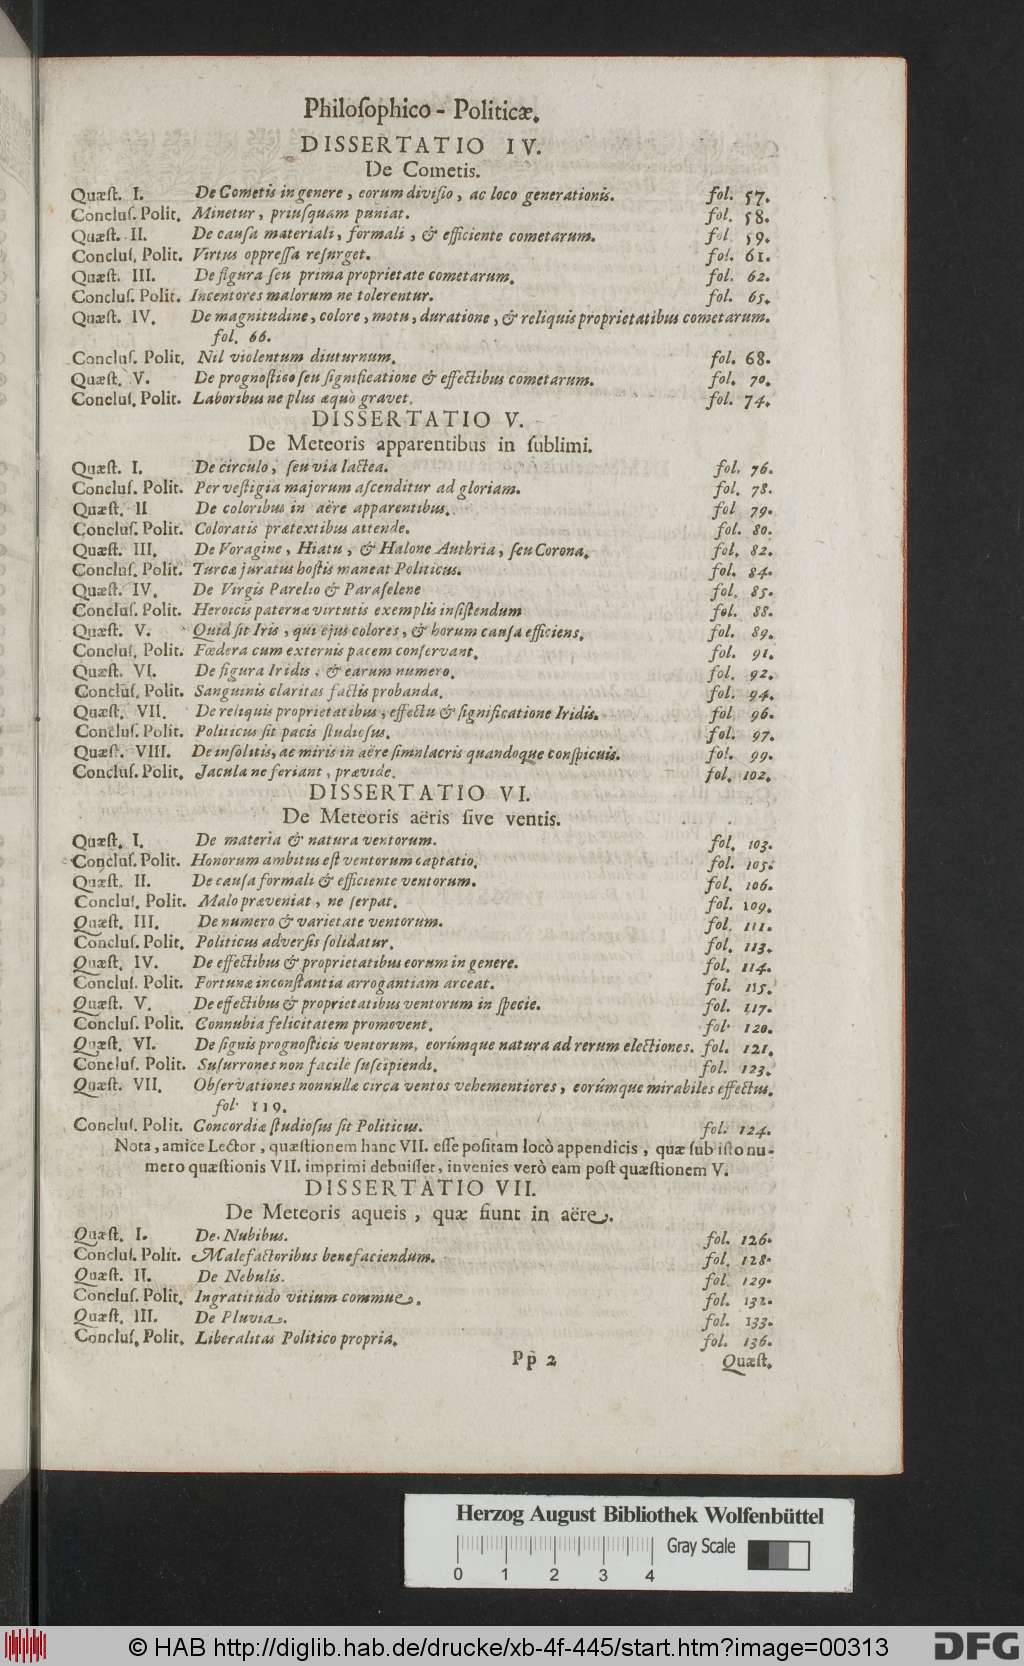 Philoſophico - Politicæ.
DISSERTATIO IV.
De Cometis.
Quæſt. I. De Cometis in genere, eorum diviſio, ac loco generationis. fol. 57.
Concluſ. Polit. Minetur, priuſquam puniat. fol. 58.
Quæſt. II. De cauſa materiali, formali, & efficiente cometarum. fol 59.
Concluſ. Polit. Virtus oppreſſa reſurget. fol. 61.
Quæſt. III. De figura ſeu prima proprietate cometarum. fol. 62.
Concluſ. Polit. Incentores malorum ne tolerentur. fol. 65.
Quæſt. IV. De magnitudine, colore, motu, duratione, & reliquis proprietatibus cometarum.
fol. 66.
Concluſ. Polit. Nil violentum diuturnum. fol. 68.
Quæſt. V. De prognoſtico ſeu ſignificatione & effectibus cometarum. fol. 70.
Concluſ. Polit. Laboribus ne plus æquò gravet. fol. 74.
DISSERTATIO V.
De Meteoris apparentibus in ſublimi.
Quæſt. I. De circulo, ſeu via lactea. fol. 76.
Concluſ. Polit. Per veſtigia majorum aſcenditur ad gloriam. fol. 78.
Quæſt. II De coloribus in aëre apparentibus. fol 79.
Concluſ. Polit. Coloratis prætextibus attende. fol. 80.
Quæſt. III. De Voragine, Hiatu, & Halone Authria, ſeu Corona. fol. 82.
Concluſ. Polit. Turcæ juratus hoſtis maneat Politicus. fol. 84.
Quæſt. IV. De Virgis Parelio & Paraſelene fol. 85.
Concluſ. Polit. Heroicis paternæ virtutis exemplis inſiſtendum fol. 88.
Quæſt. V. Quid ſit Iris, qui ejus colores, & horum cauſa efficiens. fol. 89.
Concluſ. Polit. Fœdera cum externis pacem conſervant. fol. 91.
Quæſt. VI. De figura Iridis, & earum numero. fol. 92.
Concluſ. Polit. Sanguinis claritas factis probanda. fol. 94.
Quæſt. VII. De reliquis proprietatibus, effectu & ſignificatione Iridis. fol 96.
Concluſ. Polit. Politicus ſit pacis ſtudioſus. fol. 97.
Quæſt. VIII. De inſolitis, ac miris in aëre ſimulacris quandoque conſpicuis. fol. 99.
Concluſ. Polit. Jacula ne feriant, prævide. fol. 102.
DISSERTATIO VI.
De Meteoris aëris ſive ventis.
Quæſt. I. De materia & natura ventorum. fol. 103.
Concluſ. Polit. Honorum ambitus eſt ventorum captatio. fol. 105.
Quæſt. II. De cauſa formali & efficiente ventorum. fol. 106.
Concluſ. Polit. Malo præveniat, ne ſerpat. fol. 109.
Quæſt. III. De numero & varietate ventorum. fol. 111.
Concluſ. Polit. Politicus adverſis ſolidatur. fol. 113.
Quæſt. IV. De effectibus & proprietatibus eorum in genere. fol. 114.
Concluſ. Polit. Fortunæ inconſtantia arrogantiam arceat. fol. 115.
Quæſt. V. De effectibus & proprietatibus ventorum in ſpecie. fol. 117.
Concluſ. Polit. Connubia felicitatem promovent. fol. 120.
Quæſt. VI. De ſignis prognoſticis ventorum, eorúmque natura ad rerum electiones. fol. 121.
Concluſ. Polit. Suſurrones non facilè ſuſcipiendi. fol. 123.
Quæſt. VII. Obſervationes nonnullæ circa ventos vehementiores, eorúmque mirabiles effectus.
fol. 119.
Concluſ. Polit. Concordiæ ſtudioſus ſit Politicus. fol. 124.
Nota, amice Lector, quæſtionem hanc VII. eſſe poſitam locò appendicis, quæ ſub iſto nu-
mero quæſtionis VII. imprimi debuiſſet, invenies verò eam poſt quæſtionem V.
DISSERTATIO VII.
De Meteoris aqueis, quæ fiunt in aëre.
Quæſt. I. De Nubibus. fol. 126.
Concluſ. Polit. Malefactoribus benefaciendum. fol. 128.
Quæſt. II. De Nebulis. fol. 129.
Concluſ. Polit. Ingratitudo vitium commue. fol. 132.
Quæſt. III. De Pluvia. fol. 133.
Concluſ. Polit. Liberalitas Politico propria. fol. 136.
Pp 2 Quæſt.
Herzog August Bibliothek Wolfenbüttel
Gray Scale
0 1 2 3 4
© HAB http://diglib.hab.de/drucke/xb-4f-445/start.htm?image=00313
DFG